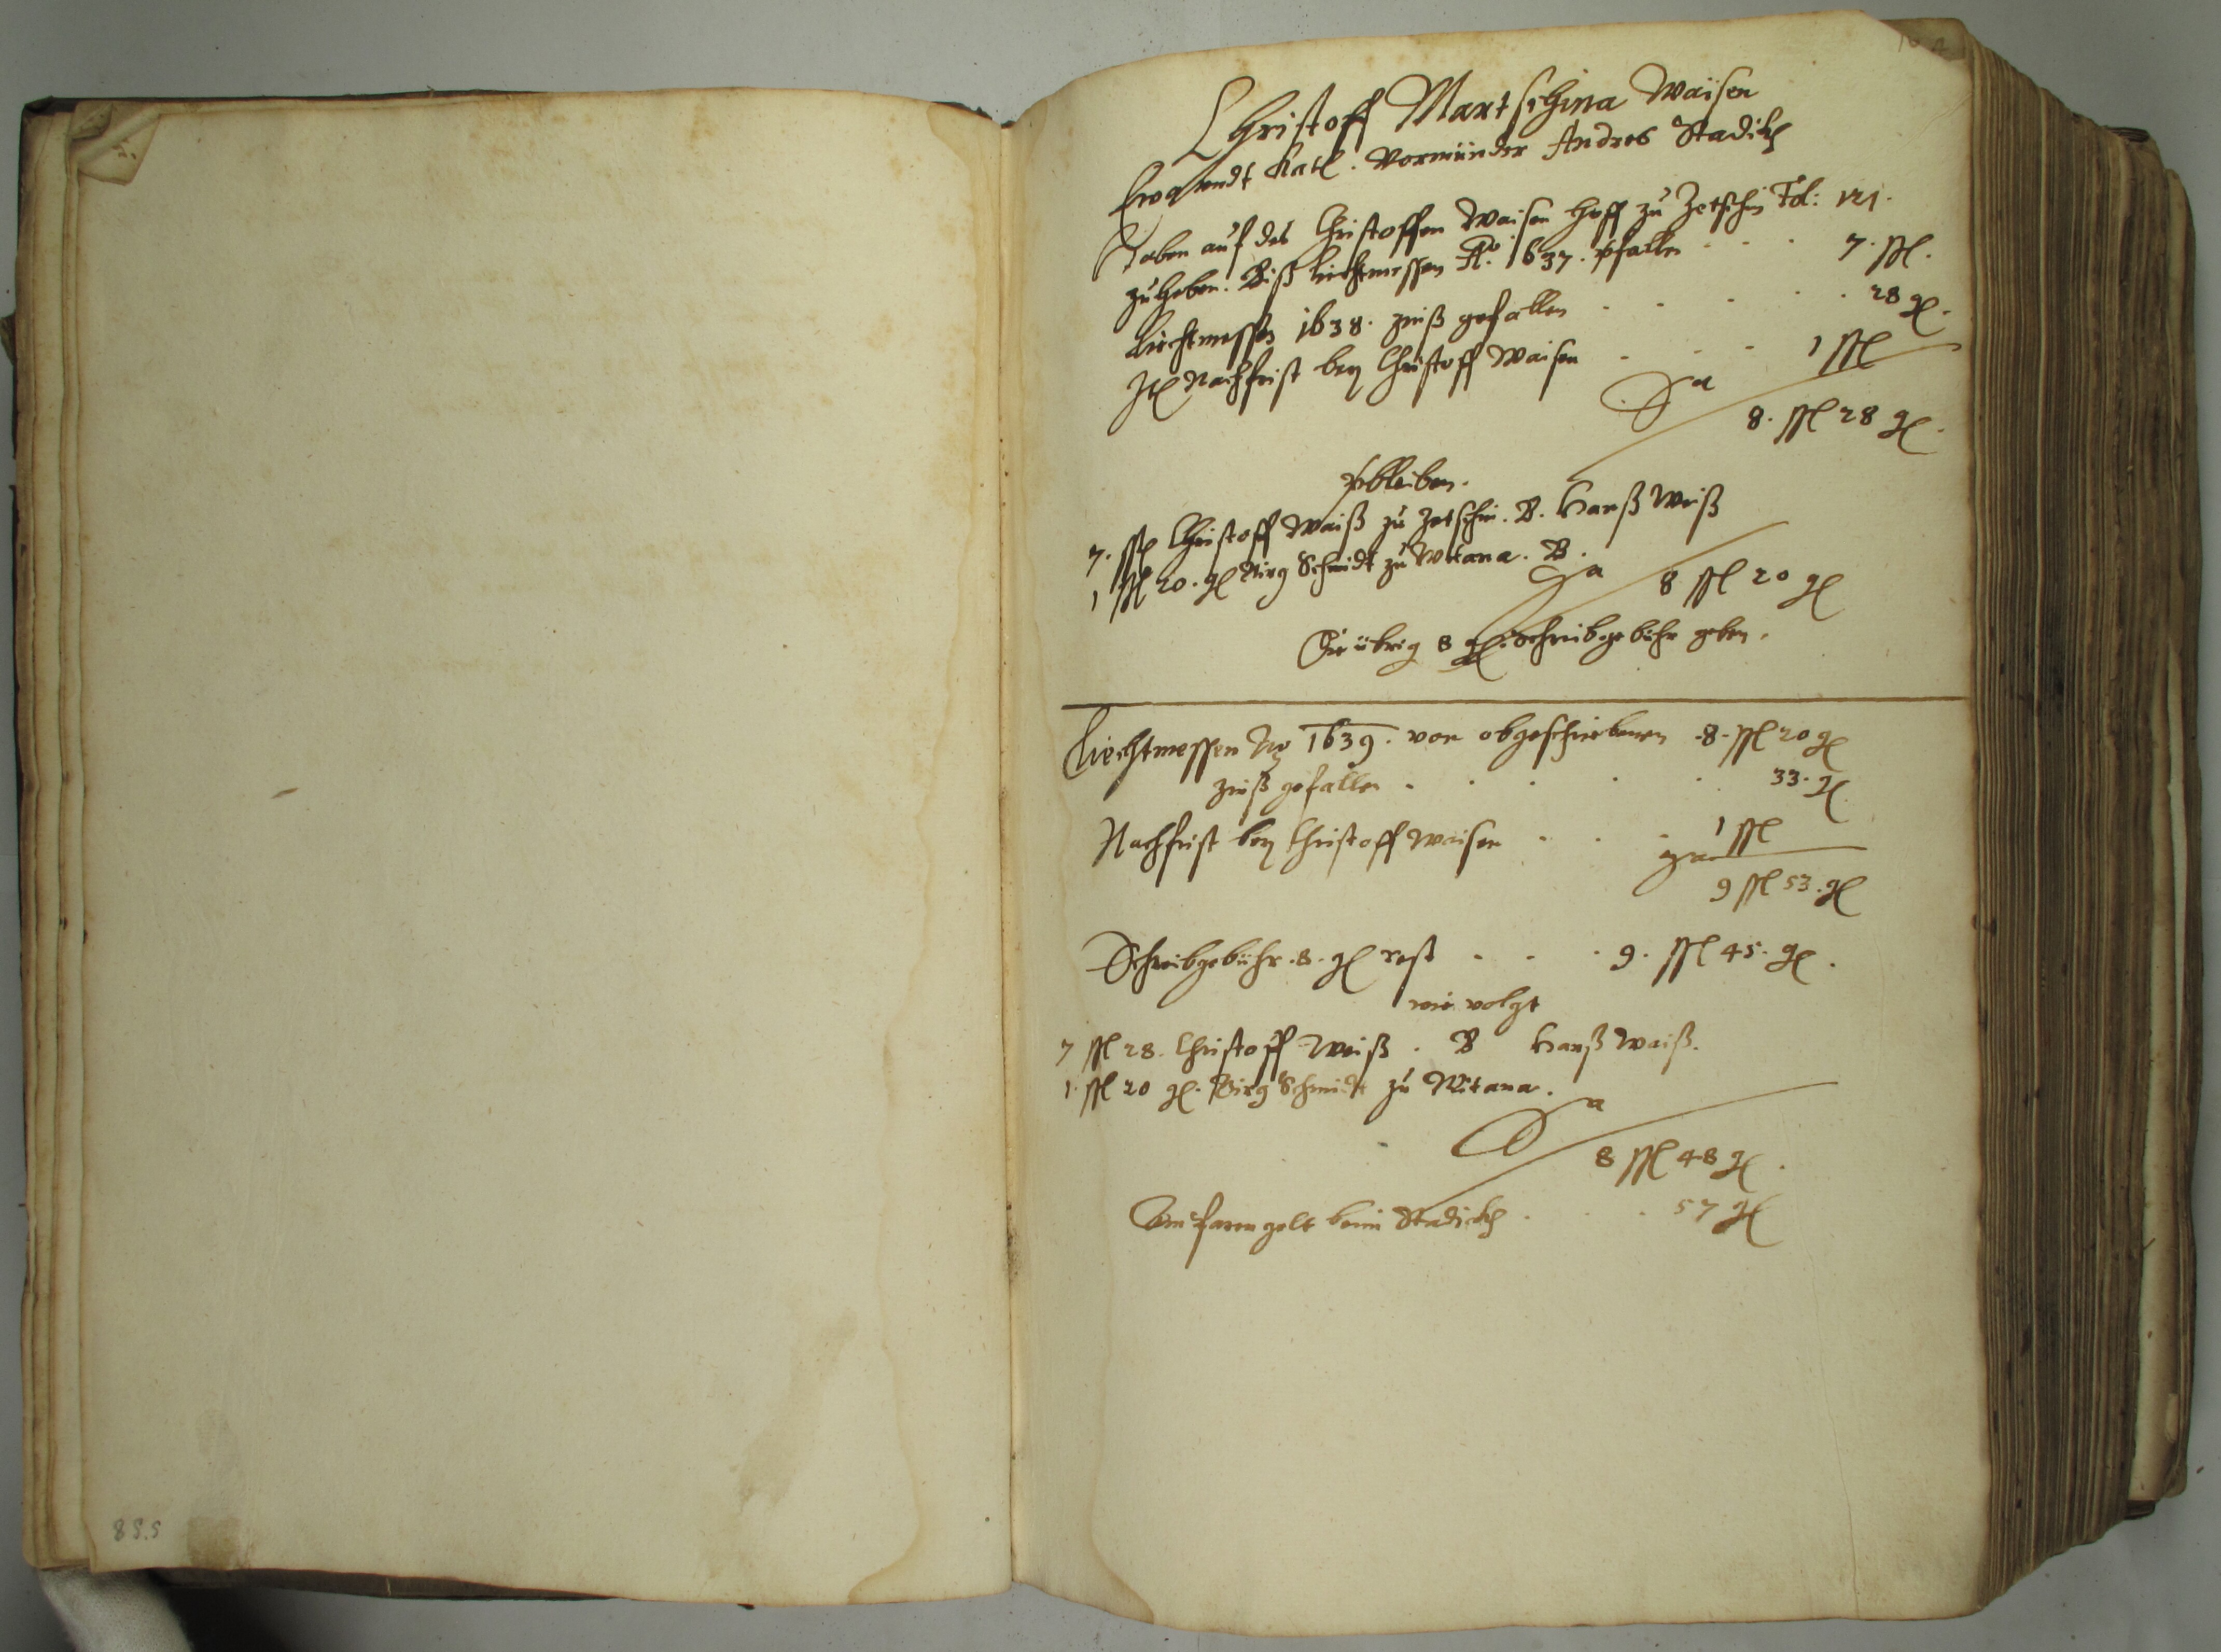 Christoff Martschina Waisen
Eva undt Katl. Vormünder Andres Stadikh
Haben auf des Christoffen Waisen Hoff zu Zetschin Fol: 121.
zu heben. Biß Liechtmessen Ao. 1637. verfallen . . . 7. ßl.
Liechtmessen 1638. zinß gefallen . . . . . 28 gl.
Itl Nachfrist bey Christoff Waisen . . . 1 ßl
Sa 8. ßl 28 gl.
verbleiben.
7. ßl Christoff Waiß zu Zetschin. B. Hanß Weiß
1 ßl 20. gl Pirg Schmidt zu Witana. B.
Sa 8 ßl 20 gl
Die übrig 8 gl. Schreibgebühr geben.
Liechtmessen Ao 1639. von obgeschriebenen .8. ßl 20 gl
zinß gefallen . . . . . 33. gl
Nachfrist bey Christoff Waisen . . . 1 ßl
Sa
9 ßl 53. gl
Schreibgebühr .8. gl rest . . . 9. ßl 45. gl.
wie volgt
7 ßl 28. Christoff Weiß . B Hanß Waiß.
1. ßl 20 gl. Pirg Schmidt zu Witana.
Sa
8 ßl 48 gl.
beim Stadikh . . . 57 gl
8 S. 5